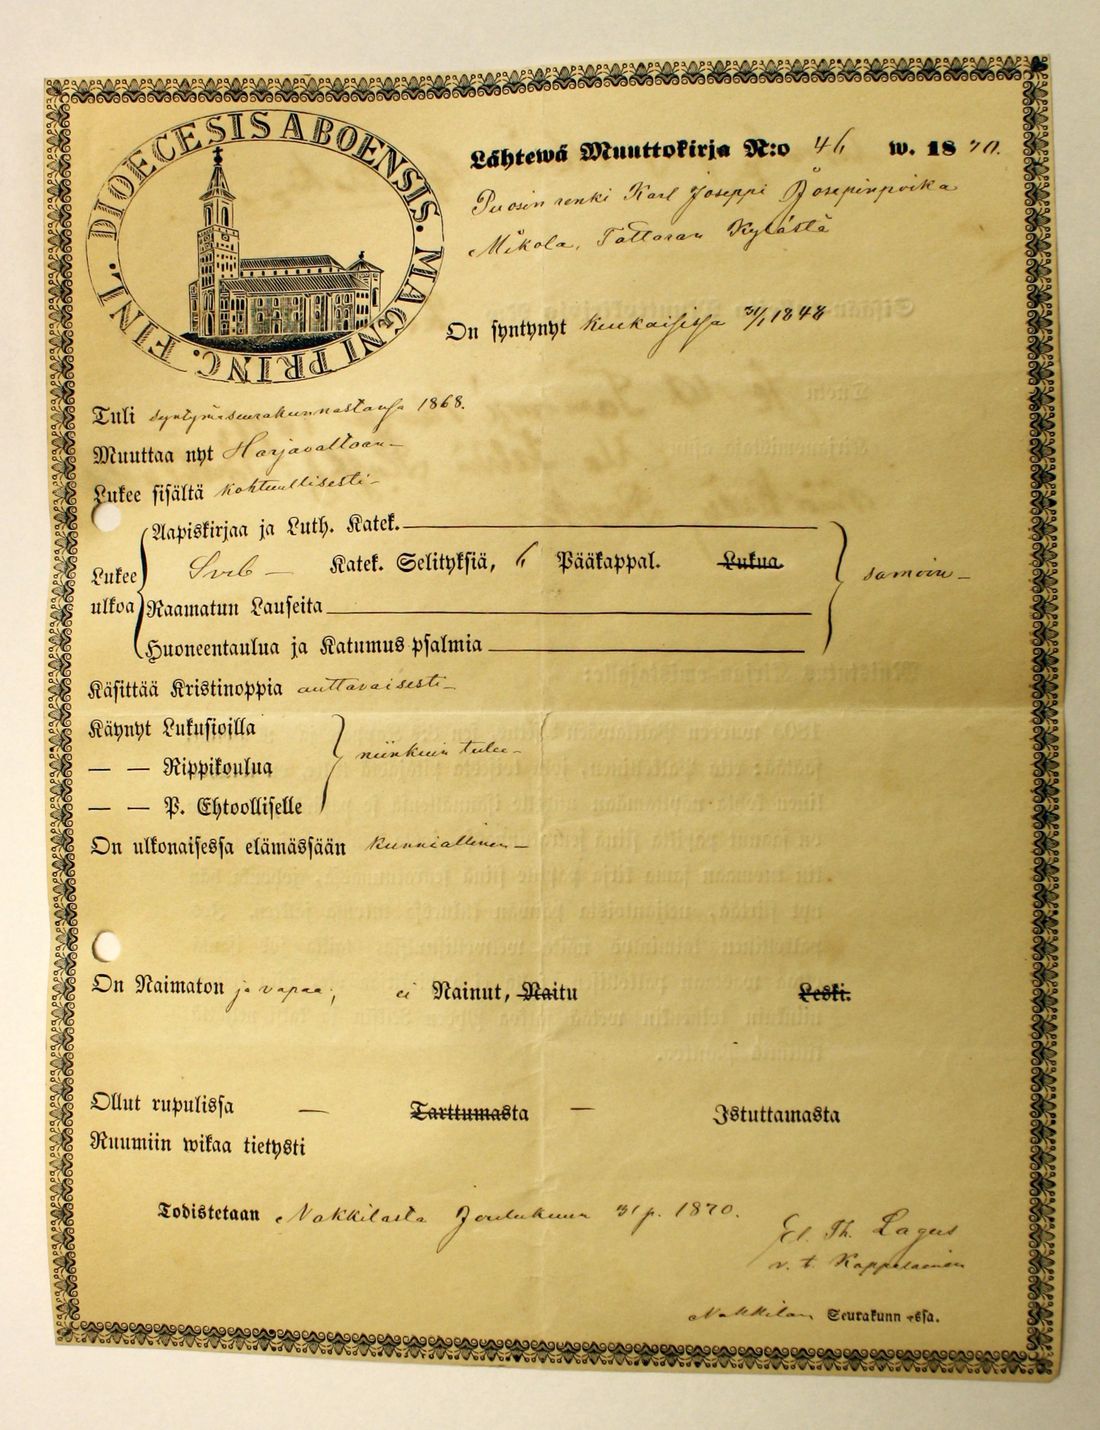 DIOECESIS ABOENSIS. MAGNI PRINC. FINL.
Lähtewä Muuttokirja N:o 46 w. 1870.
renki Karl Joseppi Josepinpoika
Mikola, Tattaran Kylästä
On syntynyt kuukaisessa 31/1 1848
Tuli syntymäseurakunnastansa 1868.
Muuttaa nyt Harjavaltaan –
Lukee sisältä kohtuullisesti –
Lukee ulkoa
Aapiskirjaa ja Luth. Katek.
Svb – Katek. Selityksiä, 6 Pääkappal. Lukua.
Raamatun Lauseita
Huoneentaulua ja Katumus psalmia
samoin –
Käsittää Kristinoppia auttavaisesti –
Käynyt Lukusioilla
— — Rippikoulua
— — P. Ehtoolliselle
niinkuin tulee –
On ulkonaisessa elämässään kunniallinen –
On Naimaton ja vapaa; ei Nainut, Naitu Leski.
Ollut rupulissa — Tarttumasta — Istuttamasta
Ruumiin wikaa tietysti
Todistetaan Nakkilasta Joulukuun 31 p. 1870.
Th. Lagus
v. t. Kappalainen
Nakkilan Seurakunnassa.